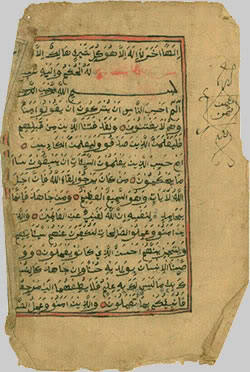 الها اخر لا اله الا هو كل شيء هالك الا
له الحكم واليه
بسم الله الرحمن الرحيم
الم احسب الناس ان يتركوا ان يقولوا امنا
وهم لا يفتنون ولقد فتنا الذين من قبلهم
فليعلمن الله الذين صدقوا وليعلمن الكاذبين
ام حسب الذين يعملون السيئات ان يسبقونا سا
ما يحكمون من كان يرجوا لقاء الله فان اجل
الله لات وهو السميع العليم ومن جاهد فانما
يجاهد لنفسه ان الله لغني عن العالمين
والذين امنوا وعملوا الصالحات لنكفرن عنهم سيئاتهم
ولنجزينهم احسن الذي كانوا يعملون و
وصينا الانسان بوالديه حسنا وان جاهداك لتشر
ك بي ما ليس لك به علم فلا تطعهما الي مرجعكم
فانبئكم بما كنتم تعملون والذين امنوا وعملوا الصا